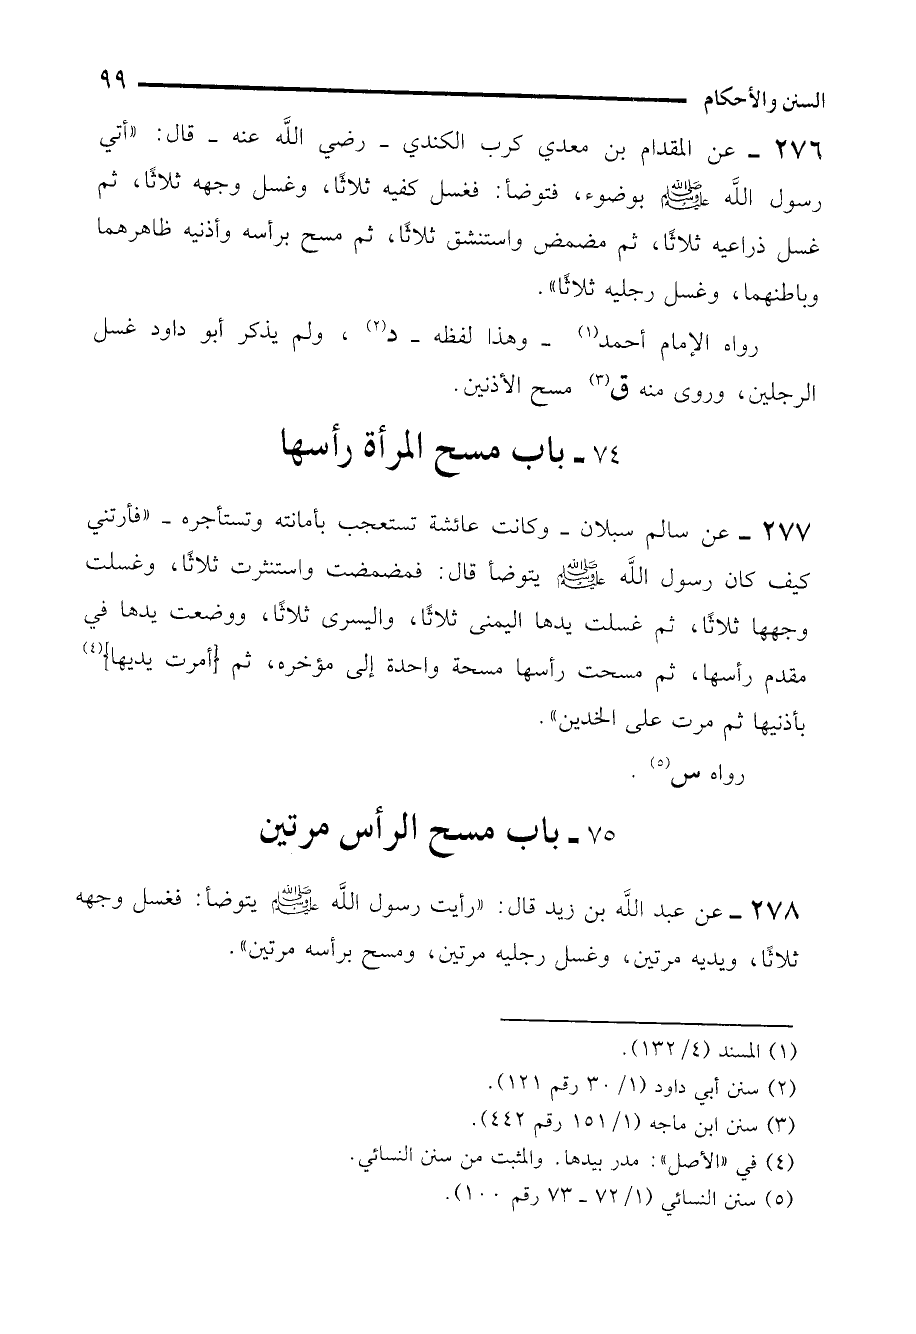 السنن والأحكام ٩٩
٢٧٦ ـ عن المقدام بن معدي كرب الكندي ـ رضي اللَّه عنه ـ قال: «أتي
رسول اللَّه ﷺ بوضوء، فتوضأ: فغسل كفيه ثلاثًا، وغسل وجهه ثلاثًا، ثم
غسل ذراعيه ثلاثًا، ثم مضمض واستنشق ثلاثًا، ثم مسح برأسه وأذنيه ظاهرهما
وباطنهما، وغسل رجليه ثلاثًا».
رواه الإمام أحمد(١) ـ وهذا لفظه ـ د(٢) ، ولم يذكر أبو داود غسل
الرجلين، وروى منه ق(٣) مسح الأذنين.
٧٤ ـ باب مسح المرأة رأسها
٢٧٧ ـ عن سالم سبلان ـ وكانت عائشة تستعجب بأمانته وتستأجره ـ «فأرتني
كيف كان رسول اللَّه ﷺ يتوضأ قال: فمضمضت واستنثرت ثلاثًا، وغسلت
وجهها ثلاثًا، ثم غسلت يدها اليمنى ثلاثًا، واليسرى ثلاثًا، ووضعت يدها في
مقدم رأسها، ثم مسحت رأسها مسحة واحدة إلى مؤخره، ثم {أمرت يديها}(٤)
بأذنيها ثم مرت على الخدين».
رواه س(٥) .
٧٥ ـ باب مسح الرأس مرتين
٢٧٨ ـ عن عبد اللَّه بن زيد قال: «رأيت رسول اللَّه ﷺ يتوضأ: فغسل وجهه
ثلاثًا، ويديه مرتين، وغسل رجليه مرتين، ومسح برأسه مرتين».
(١) المسند (٤/ ١٣٢).
(٢) سنن أبي داود (١/ ٣٠ رقم ١٢١).
(٣) سنن ابن ماجه (١/ ١٥١ رقم ٤٤٢).
(٤) في «الأصل»: مدر بيدها. والمثبت من سنن النسائي.
(٥) سنن النسائي (١/ ٧٢ ـ ٧٣ رقم ١٠٠).